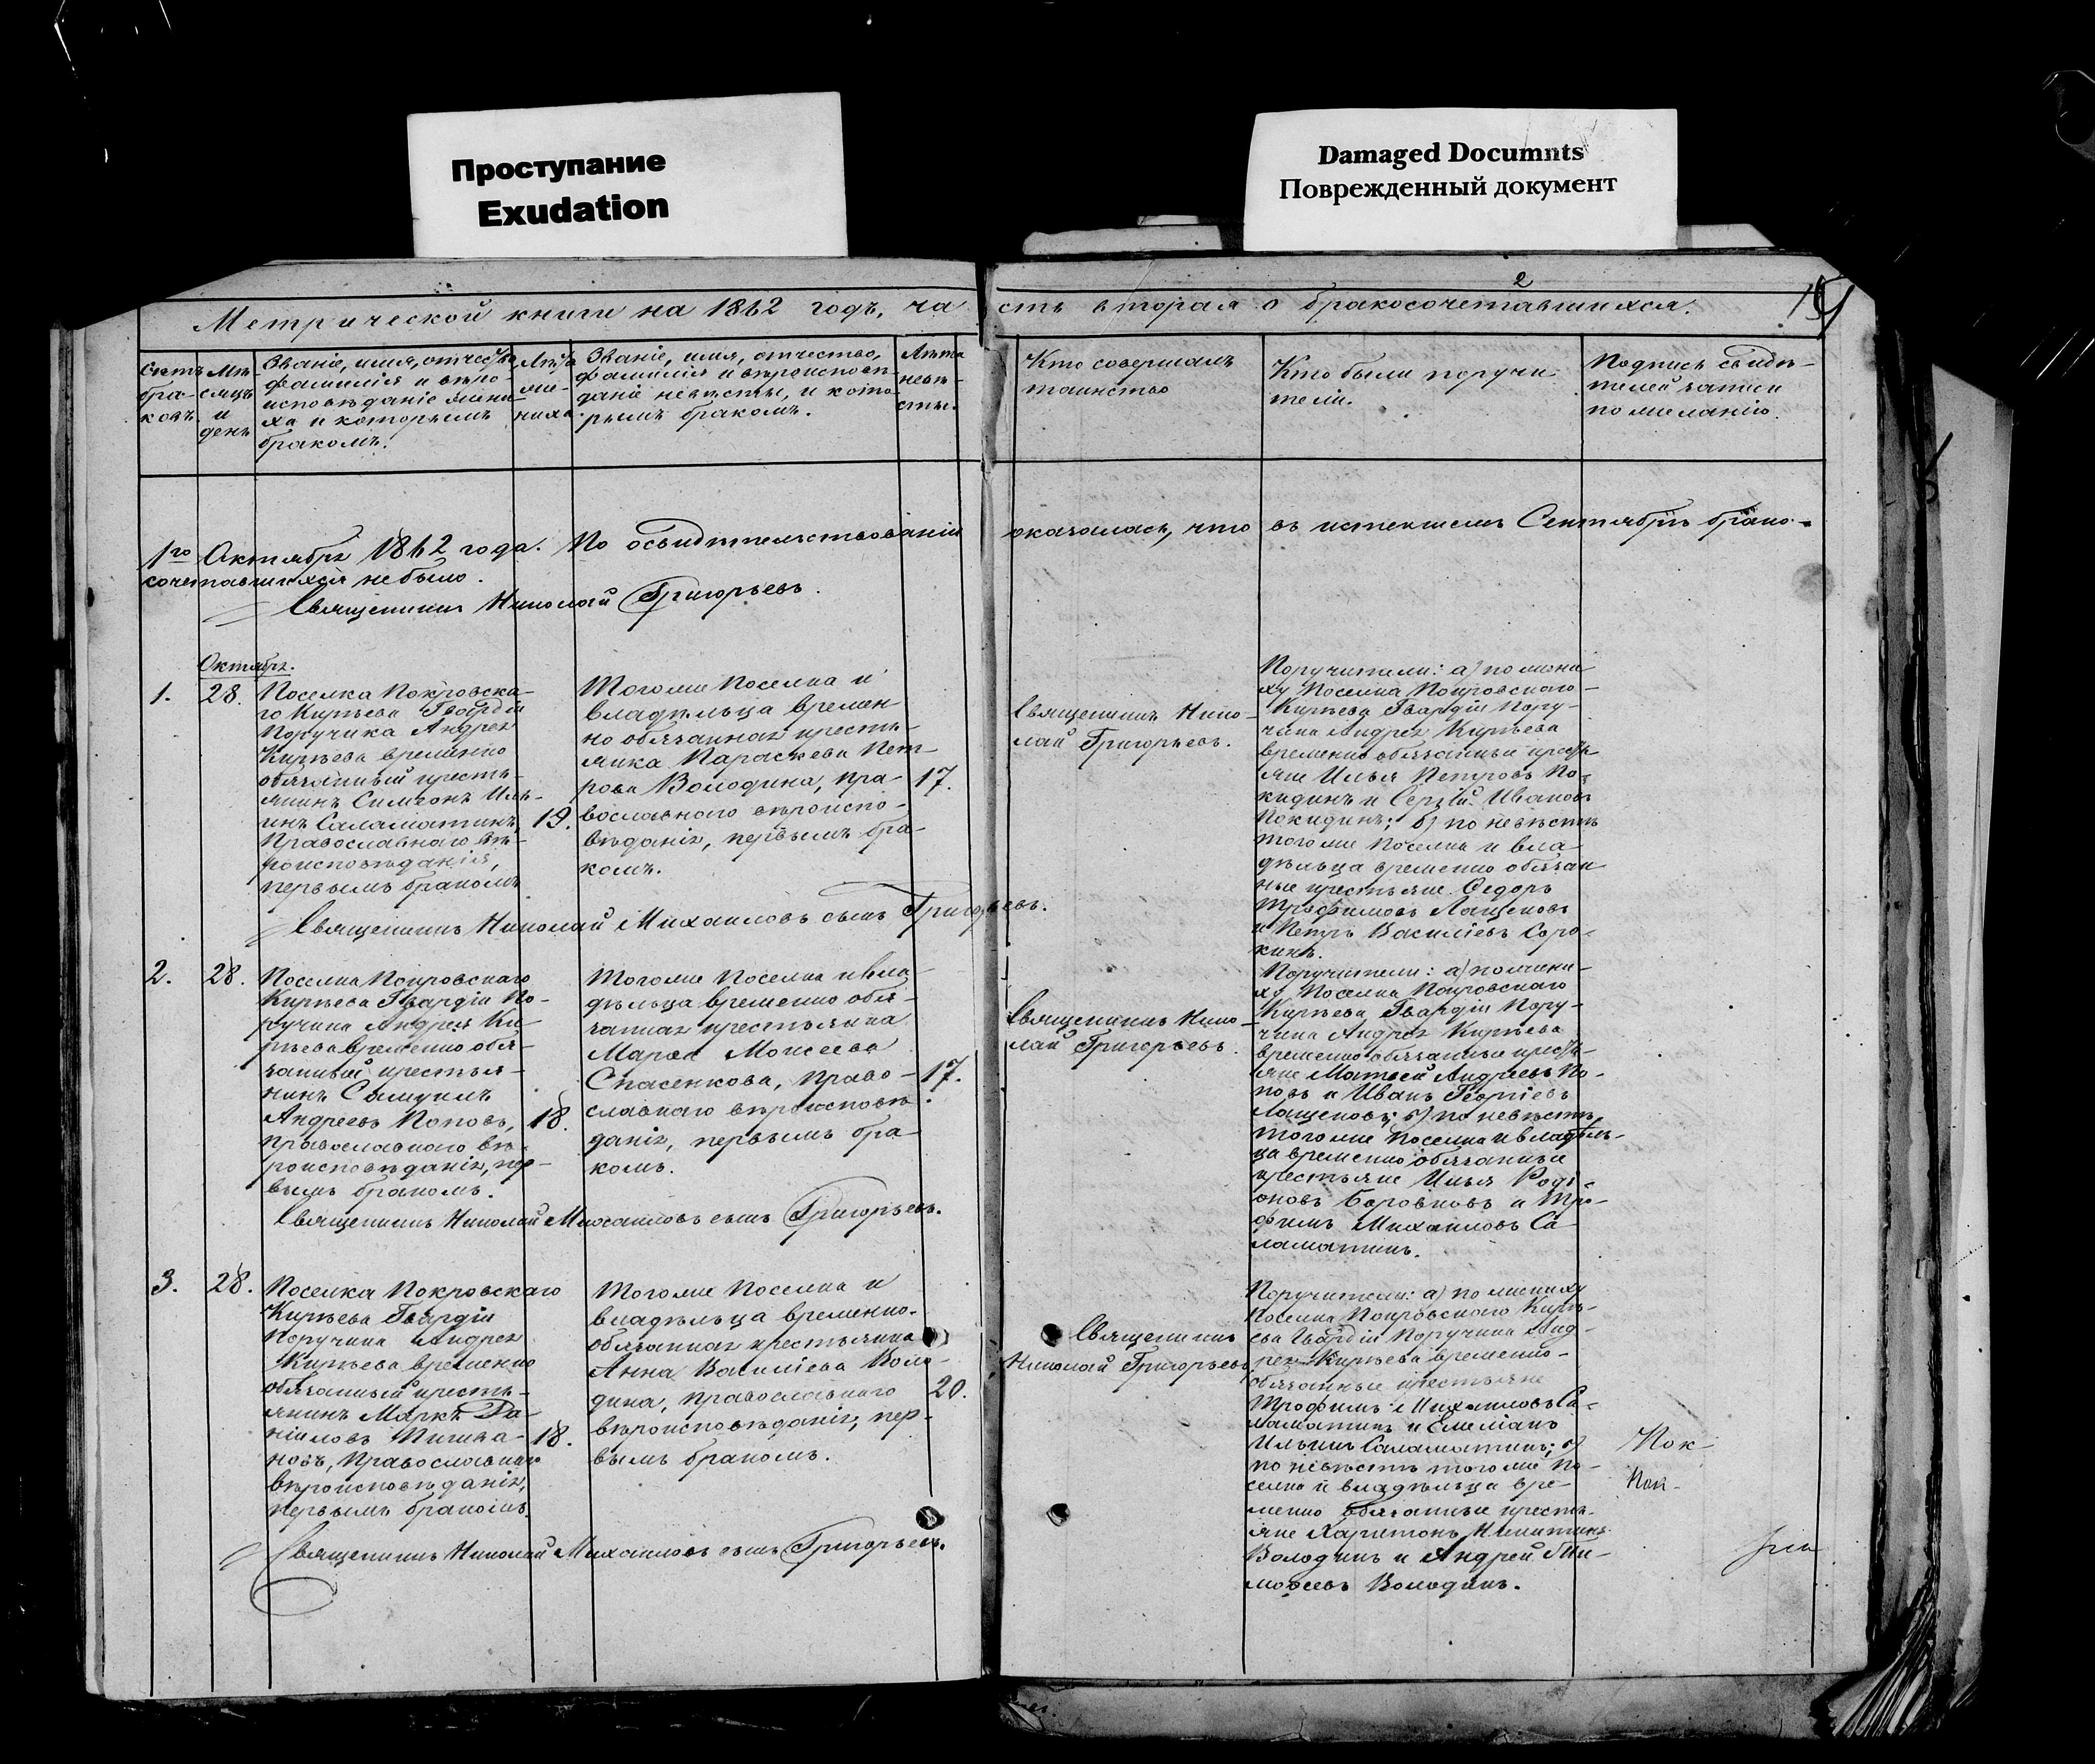 Проступание
Exudation
Damaged Documnts
Поврежденный документ
2
Метрической книги на 1862 годъ, ча
сть вторая о бракосочетавшихся.
Счетъ
бра-
ковъ.
Мѣ-
сяцъ
и
день
Званіе, имя, отчество,
фамилія и вѣро-
исповѣданіе жени-
ха и которымъ
бракомъ.
Лѣта
же-
ниха.
Званіе, имя, отчество,
фамилія и вѣроисповѣ-
даніе невѣсты, и кото-
рымъ бракомъ.
Лѣта
невѣ-
сты.
Кто совершалъ
таинство
Кто были поручи-
тели.
Подпись свидѣ-
телей записи
по желанію.
1го Октября 1862 года. По освидѣтельствованіи оказалась, что въ истекшемъ Сентябрѣ брако-
сочетавшихся не было.
Священникъ Николай Григорьевъ.
Октябрь.
1.
28.
Поселка Покровска-
го Кирѣева Гвардіи
Поручика Андрея
Кирѣева временно
обязанный кресть-
янинъ Симеонъ Иль-
инъ Саламатинъ,
Православнаго вѣ-
роисповѣданія,
первымъ бракомъ
19.
Тогоже Поселка и
владѣльца времен
но обязанная кресть-
янка Параскева Пет-
рова Володина, пра-
вославнаго вѣроиспо-
вѣданія, первымъ бра-
комъ.
17.
Священникъ Нико-
лай Григорьевъ.
Поручители: а) по жени
ху Поселка Покровскаго-
Кирѣева Гвардіи Пору-
чика Андрея Кирѣева
временно обязанные кресть-
яне Илья Петровъ По-
кидинъ и Сергій Ивановъ
Покидинъ; б) по невѣстѣ
тогоже Поселка и вла-
дѣльца временно обязан
ные крестьяне Ѳедоръ
Трофимовъ Лащеновъ
и Петръ Василіевъ Соро-
кинъ.
Священникъ Николай Михаиловъ сынъ Григорьевъ.
2.
28.
Поселка Покровскаго
Кирѣева Гвардіи По-
ручика Андрея Ки-
рѣева временно обя-
занный крестья-
нинъ Самуилъ
Андреевъ Поповъ,
православнаго вѣ-
роисповѣданія, пер-
вымъ бракомъ.
18.
Тогоже Поселка и вла-
дѣльца временно обя-
занная крестьянка
Марѳа Моисеева
Спасенкова, Право-
славнаго вѣроисповѣ-
данія, первымъ бра
комъ.
17.
Священникъ Нико-
лай Григорьевъ.
Поручители: а) по жени-
ху Поселка Покровскаго
Кирѣева Гвардіи Пору-
чика Андрея Кирѣева
временно обязанные кресть-
яне Матвей Андреевъ По-
повъ и Иванъ Георгіевъ
Лащеновъ; б) по невѣстѣ
тогоже Поселка и владѣль-
ца временно обязанные
крестьяне Илья Роді-
оновъ Боровковъ и Тро-
фимъ Михаиловъ Са-
ламатинъ.
Священникъ Николай Михаиловъ сынъ Григорьевъ.
3.
28.
Поселка Покровскаго
Кирѣева Гвардіи
Поручика Андрея
Кирѣева временно
обязанный кресть-
янинъ Маркъ Да-
ніиловъ
новъ, Православнаго
вѣроисповѣданія,
первымъ бракомъ.
18.
Тогоже Поселка и
владѣльца временно-
обязанная крестьянка
Анна Василіева Воло-
дина, Православнаго
вѣроисповѣданія, пер-
вымъ бракомъ.
20.
Священникъ
Николай Григорьевъ
Поручители: а) по жениху
Поселка Покровскаго Кирѣ-
ева Гвардіи Поручика Анд-
рея Кирѣева временно-
обязанные крестьяне
Трофимъ Михаиловъ Са-
ламатинъ и Емеліанъ
Ильинъ Саламатинъ; б)
по невѣстѣ тогоже По-
селка и владѣльца вре-
менно обязанные кресть-
яне Харитонъ Никитинъ
Володинъ и Андрей Ти-
моѳеевъ Володинъ.
Священникъ Николай Михаиловъ сынъ Григорьевъ.